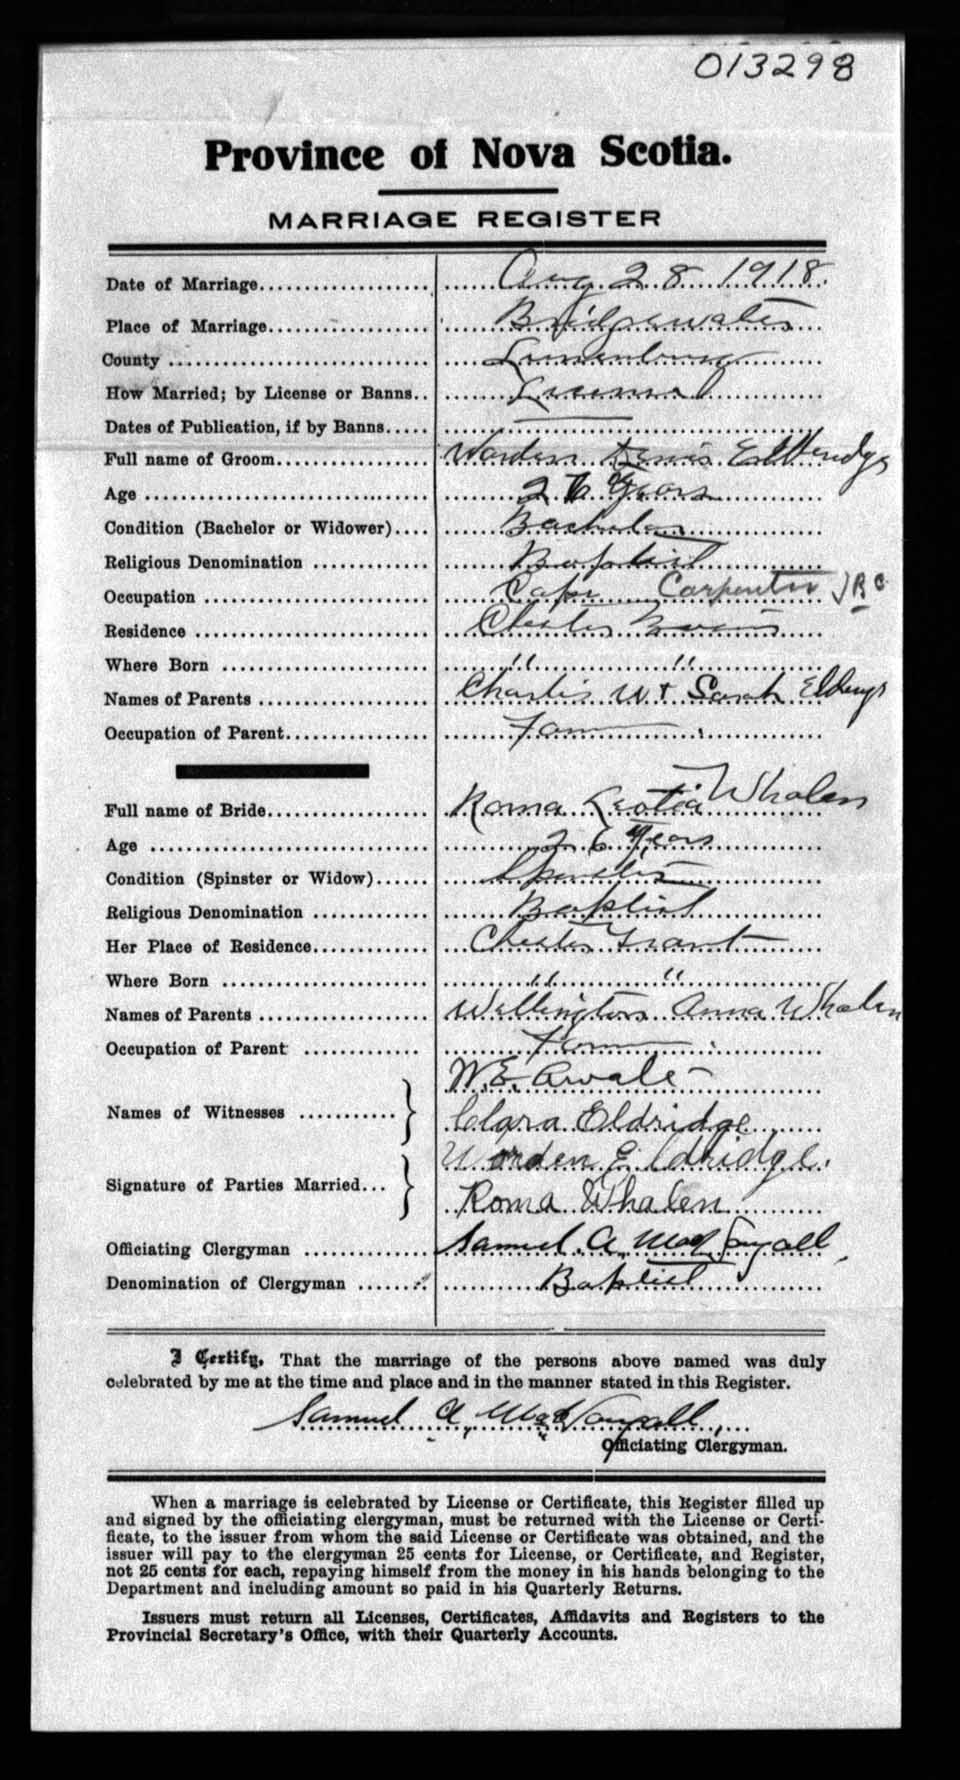 013298
Province of Nova Scotia.
MARRIAGE REGISTER
Date of Marriage.................... Aug 28 1918
Place of Marriage................... Bridgewater
County .............................. Lunenburg
How Married; by License or Banns.. License
Dates of Publication, if by Banns..... ———
Full name of Groom.................. Warden Denis
Age ................................. Years
Condition (Bachelor or Widower).... Bachelor
Religious Denomination ............. Baptist
Occupation .......................... Carpenter
Residence ........................... Chester
Where Born ......................... " "
Names of Parents ................... Charles W & Sarah
Occupation of Parent................. Farmer
Full name of Bride................... Roma Leotia Whalen
Age ................................. 26 Years
Condition (Spinster or Widow)...... Spinster
Religious Denomination ............. Baptist
Her Place of Residence.............. Chester Grant
Where Born ......................... " "
Names of Parents ................... Wellington Anna Whalen
Occupation of Parent ............... Farmer
W. E.
Names of Witnesses ...........}
Clara Eldridge
Worden Eldridge.
Signature of Parties Married...}
Roma Whalen
Officiating Clergyman ............... Samuel A. MacDougall
Denomination of Clergyman ....... Baptist
I Certify, That the marriage of the persons above named was duly
celebrated by me at the time and place and in the manner stated in this Register.
Samuel A. MacDougall,
Officiating Clergyman.
When a marriage is celebrated by License or Certificate, this Register filled up
and signed by the officiating clergyman, must be returned with the License or Certi-
ficate, to the issuer from whom the said License or Certificate was obtained, and the
issuer will pay to the clergyman 25 cents for License, or Certificate, and Register,
not 25 cents for each, repaying himself from the money in his hands belonging to the
Department and including amount so paid in his Quarterly Returns.
Issuers must return all Licenses, Certificates, Affidavits and Registers to the
Provincial Secretary's Office, with their Quarterly Accounts.